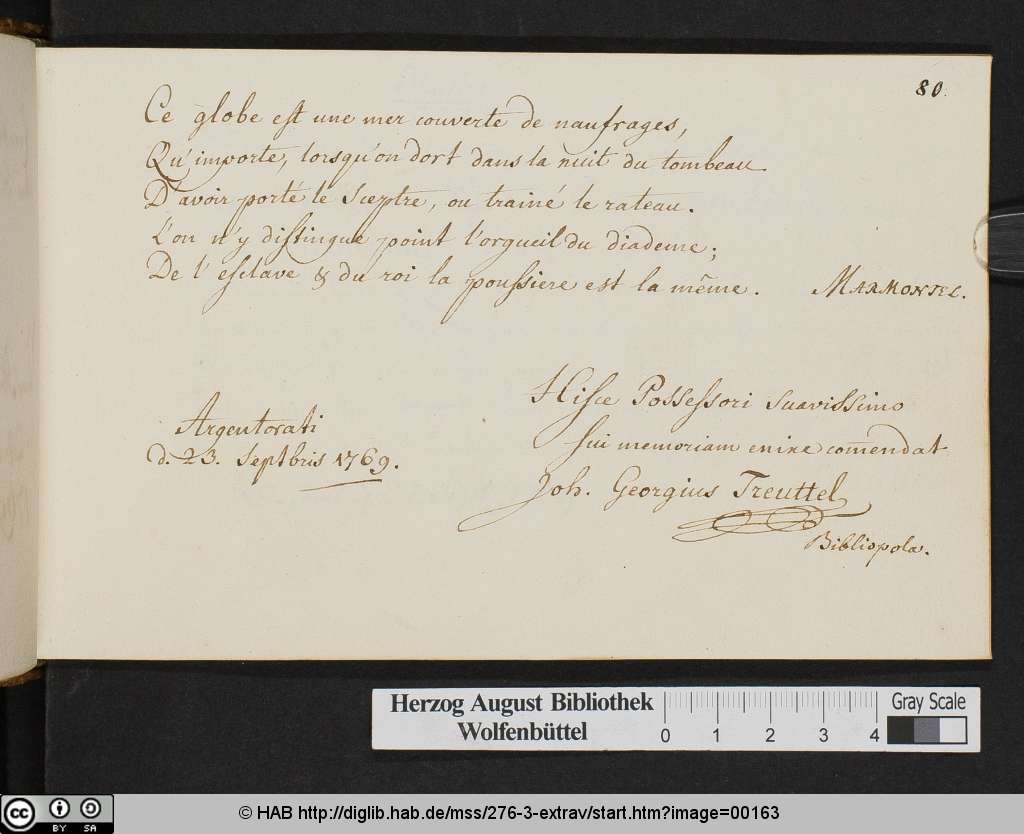 80.
Ce globe est une mer couverte de naufrages,
Qu'importe, lorsqu'on dort dans la nuit du tombeau
D'avoir porté le Sceptre, ou trainé le rateau.
L'on n'y distingue point l'orgueil du diademe;
De l'esclave & du roi la poussiere est la même. MARMONTEL.
Hisce Possessori suavissimo
sui memoriam enixe comendat
Joh. Georgius Treuttel
Bibliopola.
Argentorati
d. 23. Septbris 1769.
Herzog August Bibliothek
Wolfenbüttel
0 1 2 3 4
Gray Scale
cc BY SA
© HAB http://diglib.hab.de/mss/276-3-extrav/start.htm?image=00163